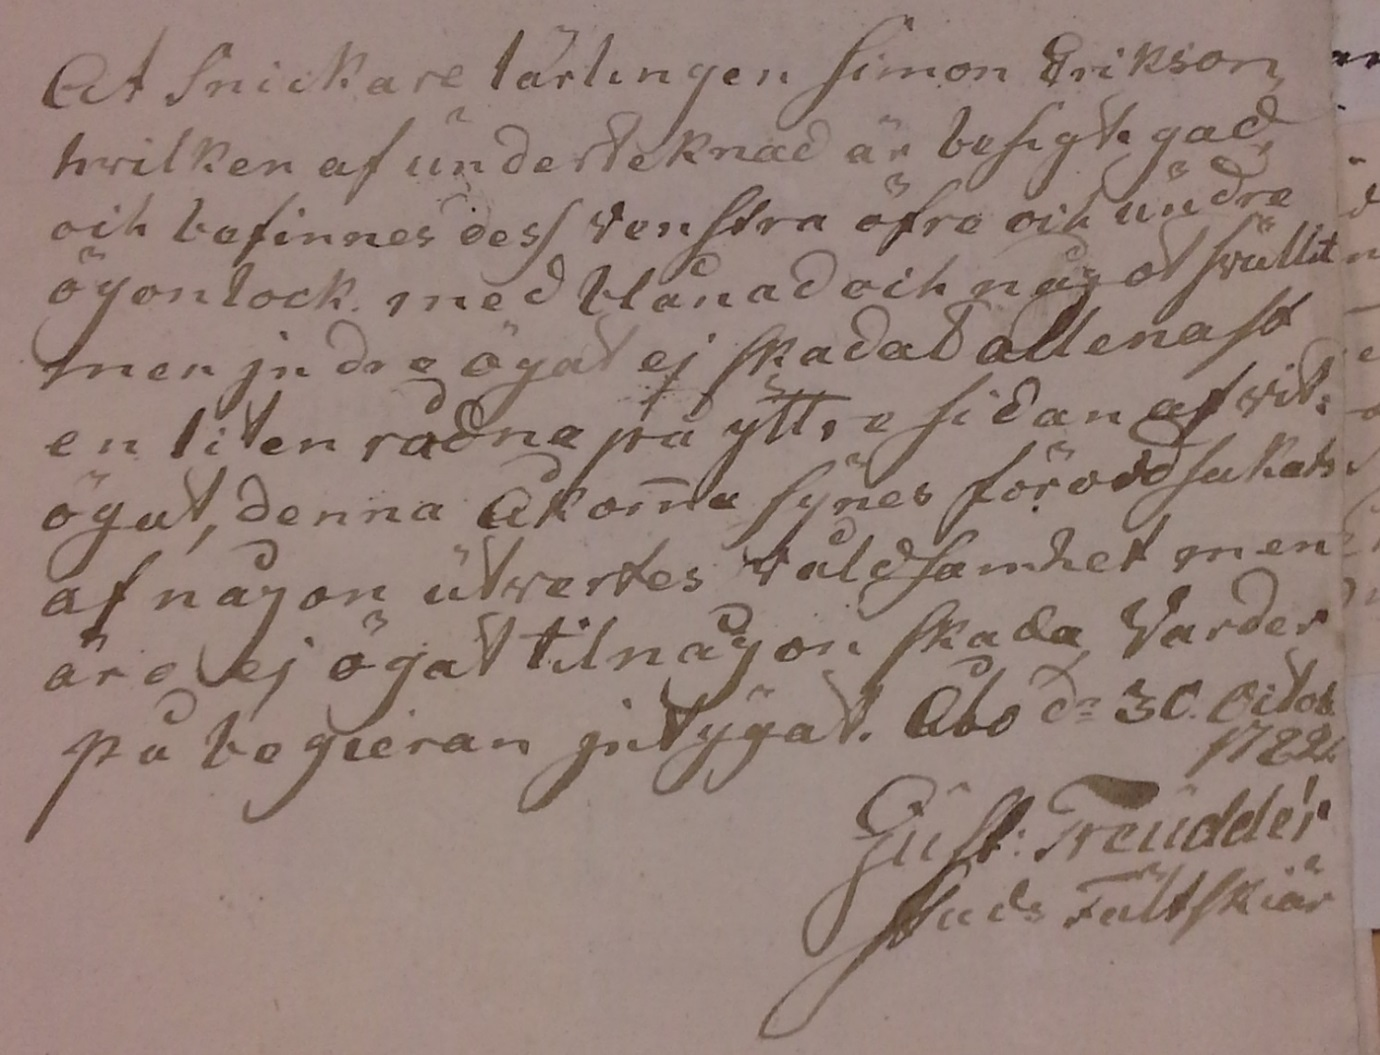 At Snickare lärlingen Simon Erikson,
hwilken af underteknad är besigtegad,
och befinnes dess venstra öfre och undre
ögonlock med blånad och något swullit
men jndre ögat ej skadat allenast
en liten rådne på yttre sidan af wit:
ögat, denna åkom̄a synes förordsakats
af någon utvertes våldsamhet men
äre ej ögat til någon skada, Varder
på begieran jntygat. Åbo dn 30. Octob
1782.
Gust: Treudder
Stads Fältskiär